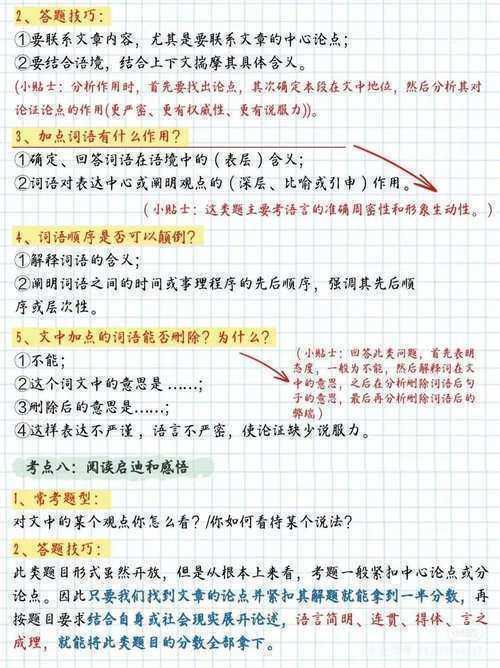 2、答题技巧：
①要联系文章内容，尤其是要联系文章的中心论点；
②要结合语境，结合上下文揣摩其具体含义。
(小贴士：分析作用时，首先要找出论点，其次确定本段在文中地位，然后分析其对
论证论点的作用(更严密、更有权威性、更有说服力))。
3、加点词语有什么作用？
①确定、回答词语在语境中的（表层）含义；
②词语对表达中心或阐明观点的（深层、比喻或引申）作用。
（小贴士：这类题主要考语言的准确周密性和形象生动性。）
4、词语顺序是否可以颠倒？
①解释词语的含义；
②阐明词语之间的时间或事理程序的先后顺序，强调其先后顺
序或层次性。
5、文中加点的词语能否删除？为什么？
①不能；
②这个词文中的意思是……；
③删除后的意思是……；
④这样表达不严谨，语言不严密，使论证缺少说服力。
（小贴士：回答此类问题，首先表明
态度，一般为不能，然后解释词在文
中的意思，之后在分析删除词语后句
子的意思，最后再分析删除词语后的
弊端）
考点八：阅读启迪和感悟
1、常考题型：
对文中的某个观点你怎么看？/你如何看待某个说法？
2、答题技巧：
此类题目形式虽然开放，但是从根本上来看，考题一般紧扣中心论点或分
论点。因此只要我们找到文章的论点并紧扣其解题就能拿到一半分数，再
按题目要求结合自身或社会现实展开论述，语言简明、连贯、得体、言之
成理，就能将此类题目的分数全部拿下。